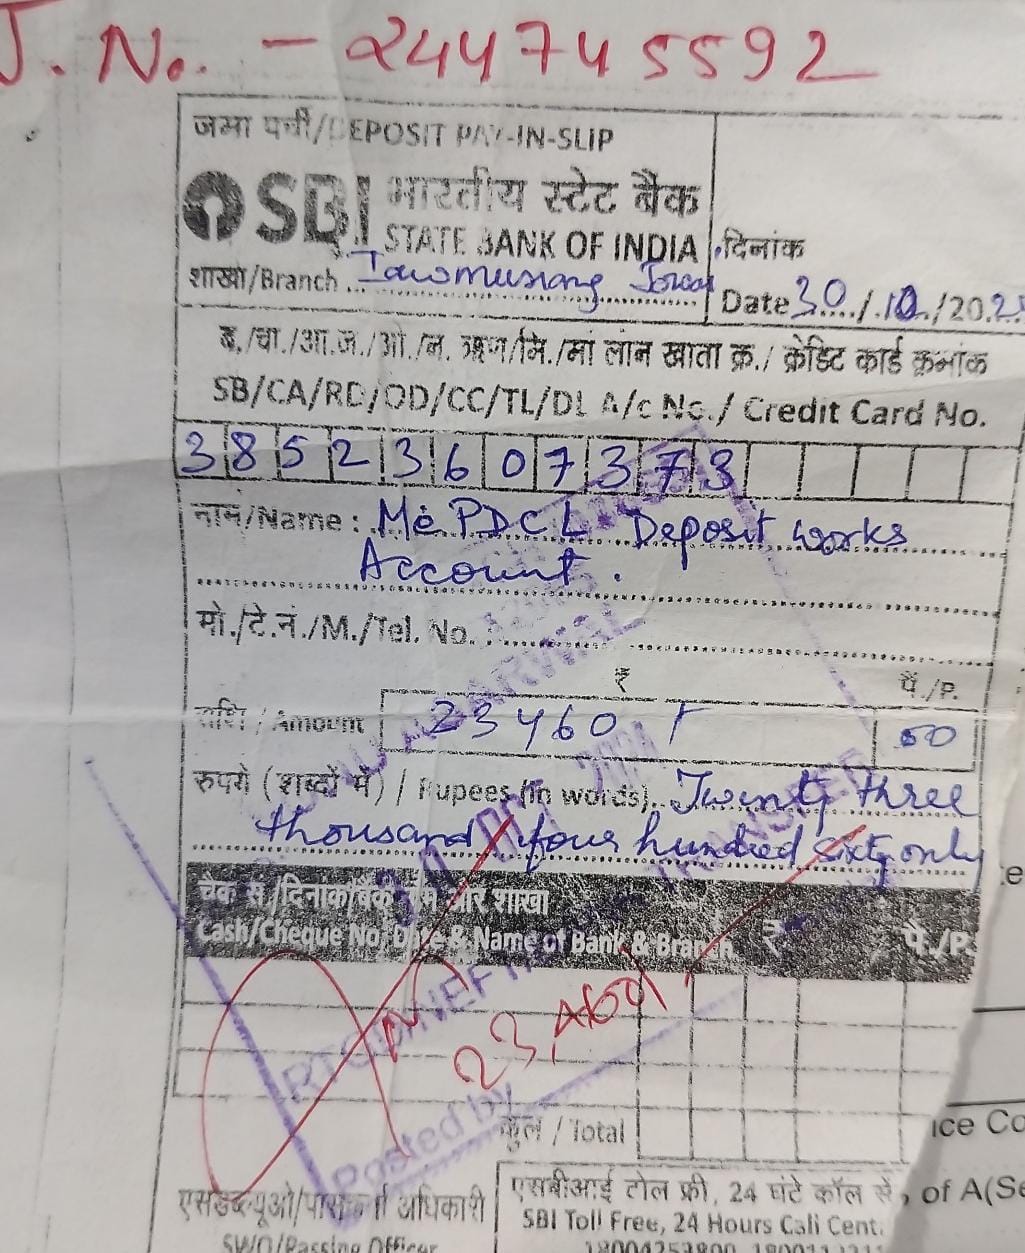 J. No. - 244745592
जमा पर्ची/DEPOSIT PAY-IN-SLIP
SBI भारतीय स्टेट बैंक
STATE BANK OF INDIA
दिनांक
शाखा/Branch ...
Date 30/10/202
ब./चा./आ.ज./ओ./न. ऋण/मि./मां लोन खाता क्र./ क्रेडिट कार्ड क्रमांक
SB/CA/RD/OD/CC/TL/DL A/c No./ Credit Card No.
38523607373
नाम/Name : MePDCL Deposit works
Account.
मो./टे.नं./M./Tel. No. :
₹ पै./P.
राशि / Amount 23460 00
रुपये (शब्दों में) / Rupees (in words). Twenty three
thousand four hundred sixty only
चेक सं/दिनांक/बैंक और शाखा
Cash/Cheque No, Date & Name of Bank & Branch ₹ पै./P.
23,460/-
RTGS/NEFT
Posted by
कुल / Total
ice Co
एसडब्ल्यूओ/पासकर्ता अधिकारी
एसबीआई टोल फ्री, 24 घंटे कॉल सें
, of A(Se
SBI Toll Free, 24 Hours Call Cent.
SWO/Passing Officer